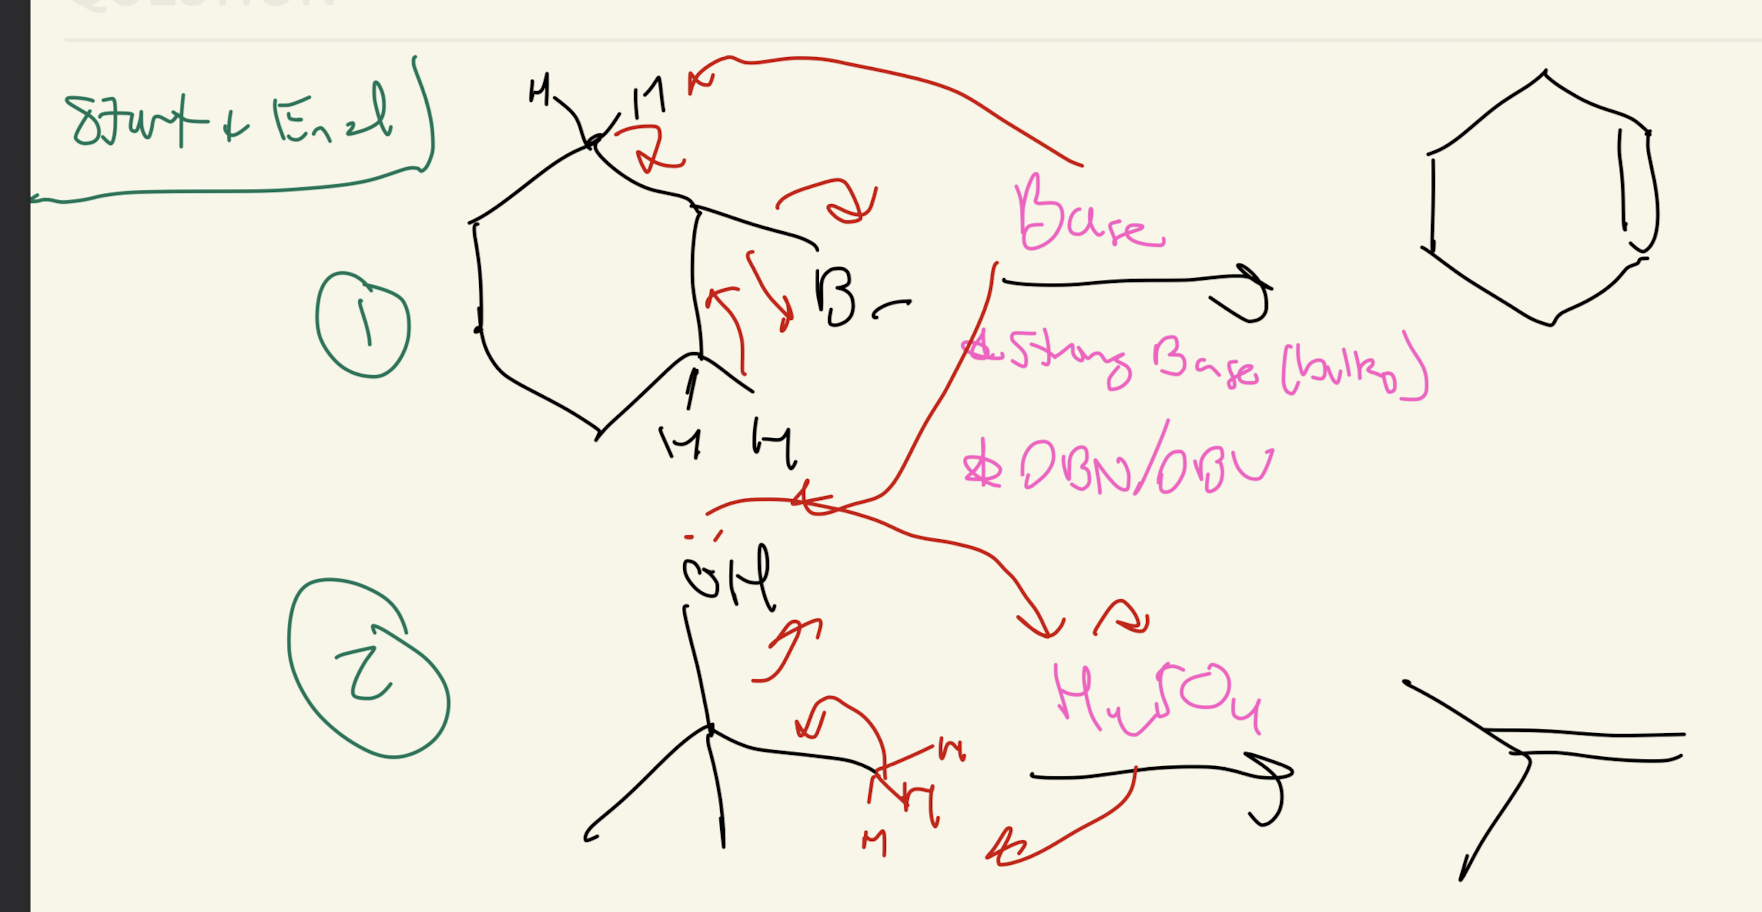 QUESTION
Start + End
H H
1
Br
H H
Base
* Strong Base (bulky)
* DBN/DBU
2
:OH
H
H
H
H2SO4